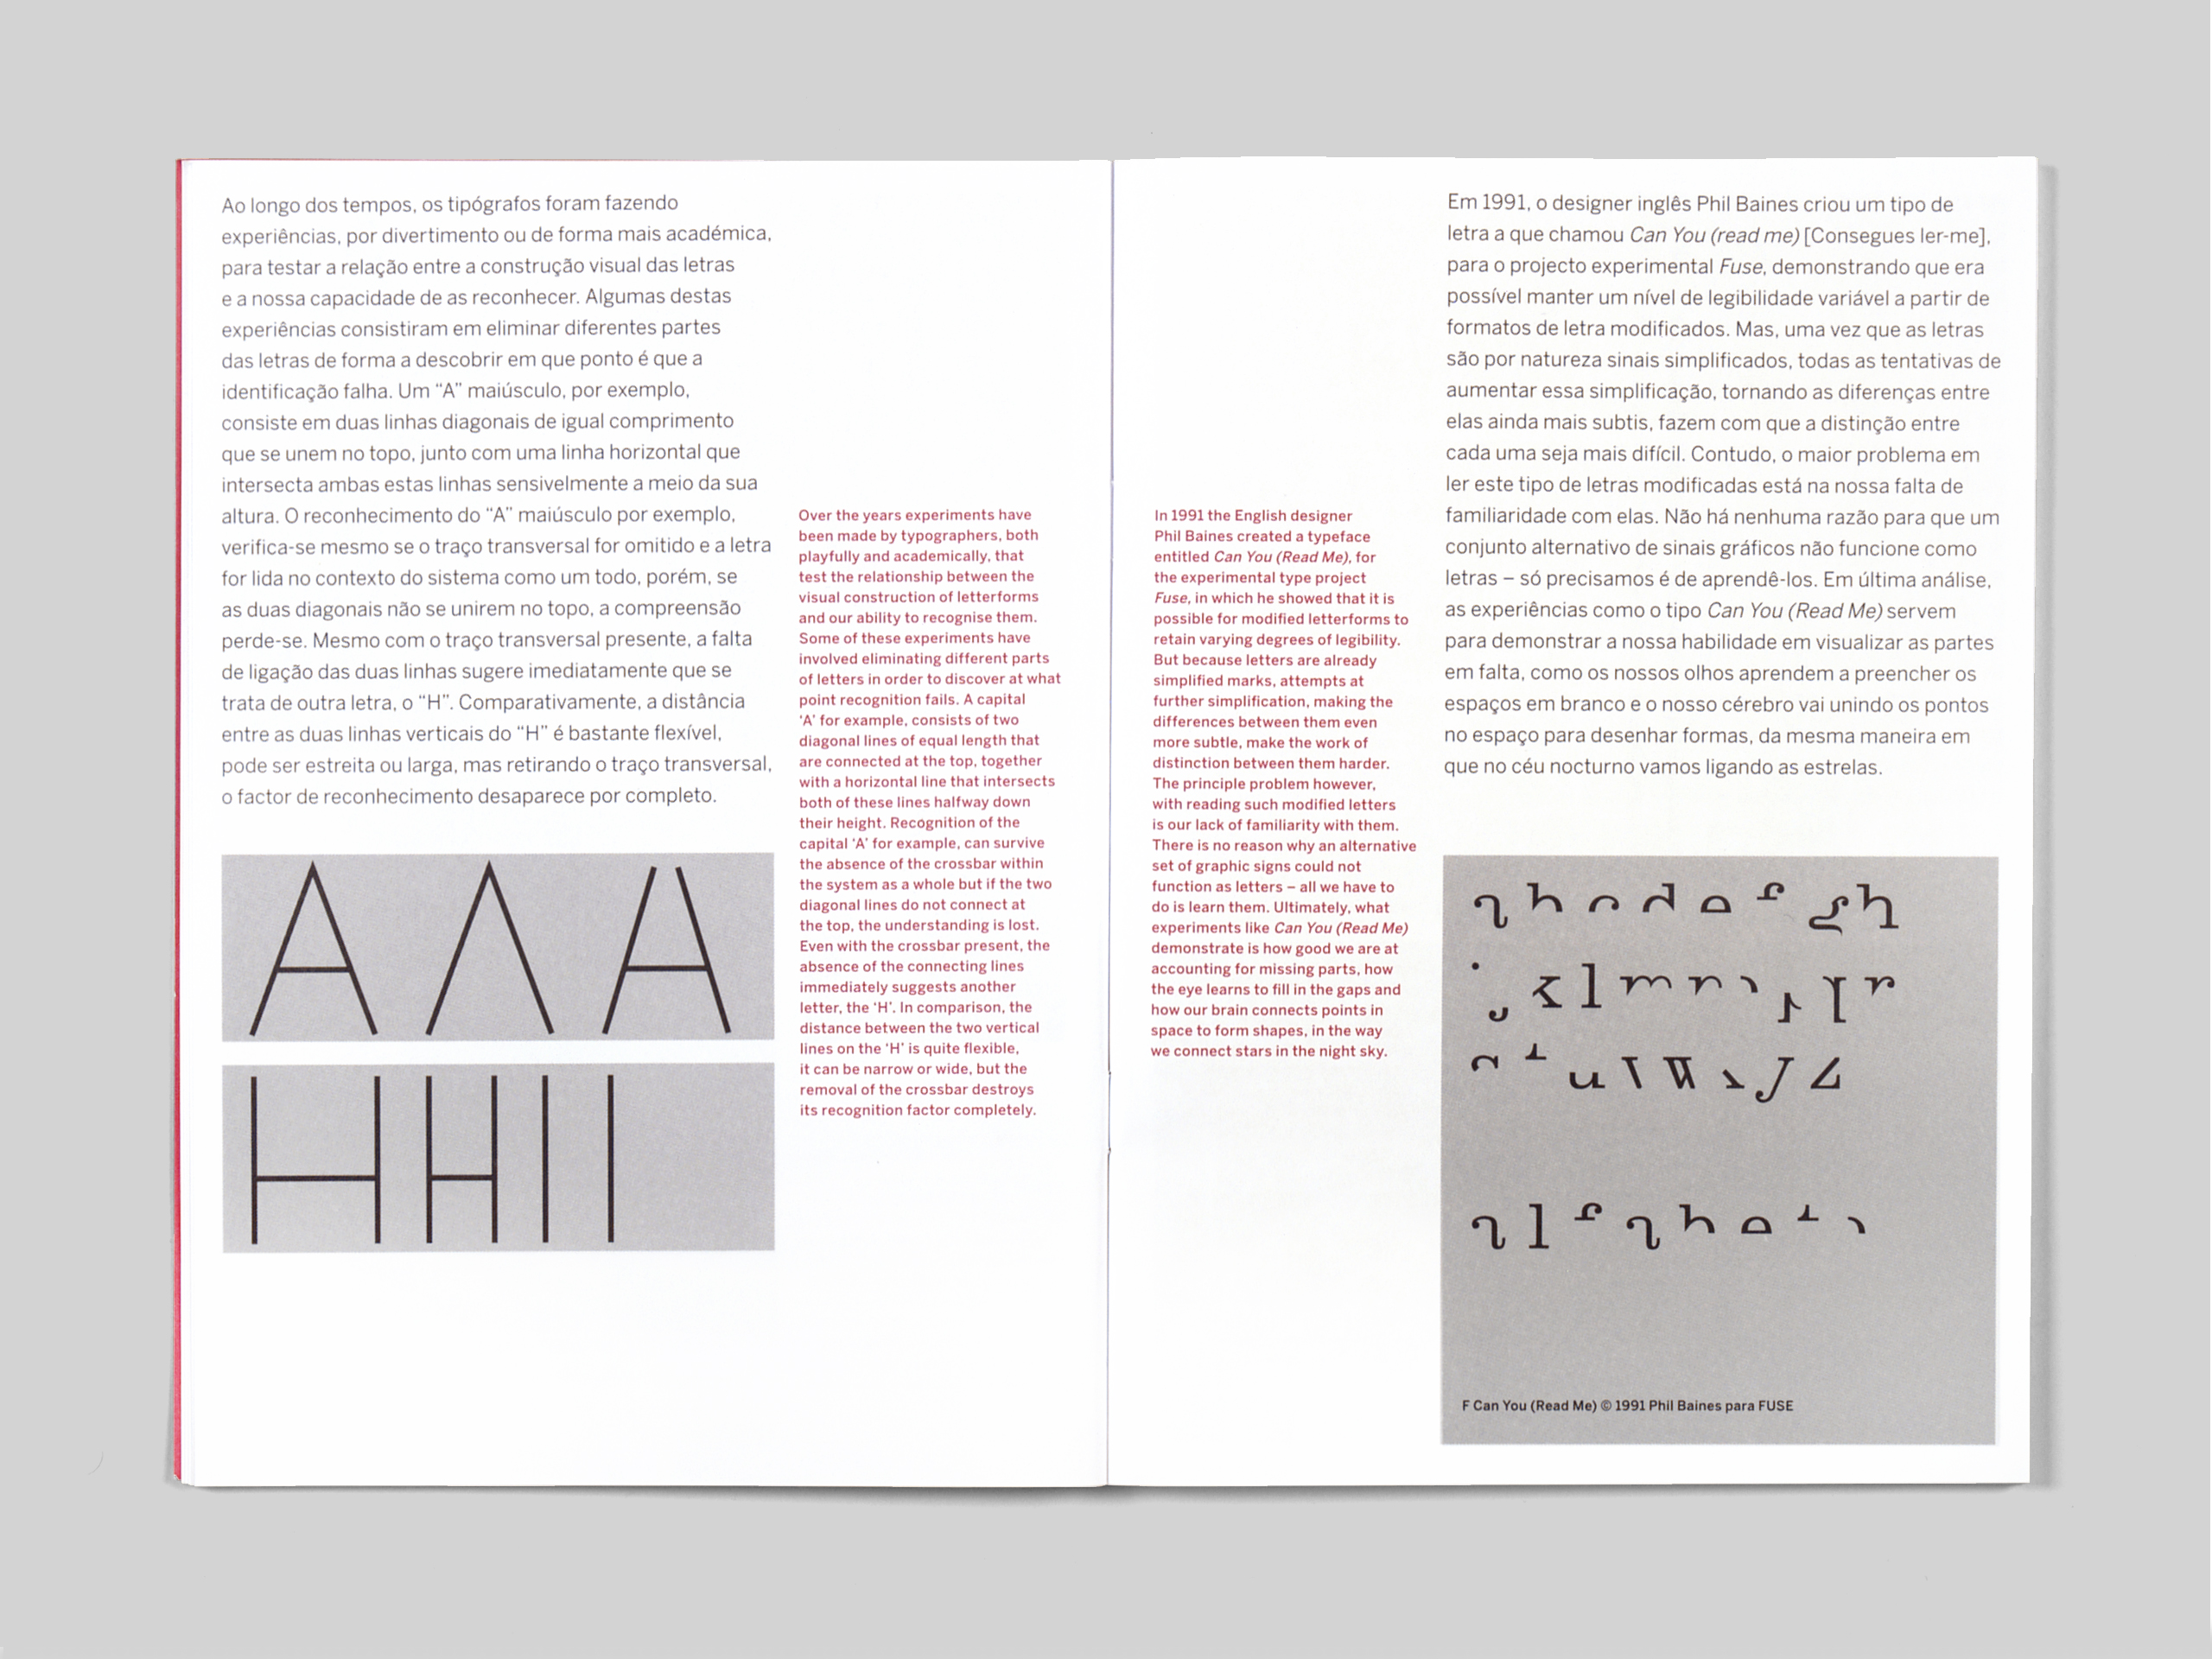 Ao longo dos tempos, os tipógrafos foram fazendo
experiências, por divertimento ou de forma mais académica,
para testar a relação entre a construção visual das letras
e a nossa capacidade de as reconhecer. Algumas destas
experiências consistiram em eliminar diferentes partes
das letras de forma a descobrir em que ponto é que a
identificação falha. Um “A” maiúsculo, por exemplo,
consiste em duas linhas diagonais de igual comprimento
que se unem no topo, junto com uma linha horizontal que
intersecta ambas estas linhas sensivelmente a meio da sua
altura. O reconhecimento do “A” maiúsculo por exemplo,
verifica-se mesmo se o traço transversal for omitido e a letra
for lida no contexto do sistema como um todo, porém, se
as duas diagonais não se unirem no topo, a compreensão
perde-se. Mesmo com o traço transversal presente, a falta
de ligação das duas linhas sugere imediatamente que se
trata de outra letra, o “H”. Comparativamente, a distância
entre as duas linhas verticais do “H” é bastante flexível,
pode ser estreita ou larga, mas retirando o traço transversal,
o factor de reconhecimento desaparece por completo.
A
H H
Over the years experiments have
been made by typographers, both
playfully and academically, that
test the relationship between the
visual construction of letterforms
and our ability to recognise them.
Some of these experiments have
involved eliminating different parts
of letters in order to discover at what
point recognition fails. A capital
‘A’ for example, consists of two
diagonal lines of equal length that
are connected at the top, together
with a horizontal line that intersects
both of these lines halfway down
their height. Recognition of the
capital ‘A’ for example, can survive
the absence of the crossbar within
the system as a whole but if the two
diagonal lines do not connect at
the top, the understanding is lost.
Even with the crossbar present, the
absence of the connecting lines
immediately suggests another
letter, the ‘H’. In comparison, the
distance between the two vertical
lines on the ‘H’ is quite flexible,
it can be narrow or wide, but the
removal of the crossbar destroys
its recognition factor completely.
In 1991 the English designer
Phil Baines created a typeface
entitled Can You (Read Me), for
the experimental type project
Fuse, in which he showed that it is
possible for modified letterforms to
retain varying degrees of legibility.
But because letters are already
simplified marks, attempts at
further simplification, making the
differences between them even
more subtle, make the work of
distinction between them harder.
The principle problem however,
with reading such modified letters
is our lack of familiarity with them.
There is no reason why an alternative
set of graphic signs could not
function as letters – all we have to
do is learn them. Ultimately, what
experiments like Can You (Read Me)
demonstrate is how good we are at
accounting for missing parts, how
the eye learns to fill in the gaps and
how our brain connects points in
space to form shapes, in the way
we connect stars in the night sky.
Em 1991, o designer inglês Phil Baines criou um tipo de
letra a que chamou Can You (read me) [Consegues ler-me],
para o projecto experimental Fuse, demonstrando que era
possível manter um nível de legibilidade variável a partir de
formatos de letra modificados. Mas, uma vez que as letras
são por natureza sinais simplificados, todas as tentativas de
aumentar essa simplificação, tornando as diferenças entre
elas ainda mais subtis, fazem com que a distinção entre
cada uma seja mais difícil. Contudo, o maior problema em
ler este tipo de letras modificadas está na nossa falta de
familiaridade com elas. Não há nenhuma razão para que um
conjunto alternativo de sinais gráficos não funcione como
letras – só precisamos é de aprendê-los. Em última análise,
as experiências como o tipo Can You (Read Me) servem
para demonstrar a nossa habilidade em visualizar as partes
em falta, como os nossos olhos aprendem a preencher os
espaços em branco e o nosso cérebro vai unindo os pontos
no espaço para desenhar formas, da mesma maneira em
que no céu nocturno vamos ligando as estrelas.
a b c d e f g h
i j k l m n o p q r
s t u v w x y z
a l f a b e t o
F Can You (Read Me) © 1991 Phil Baines para FUSE